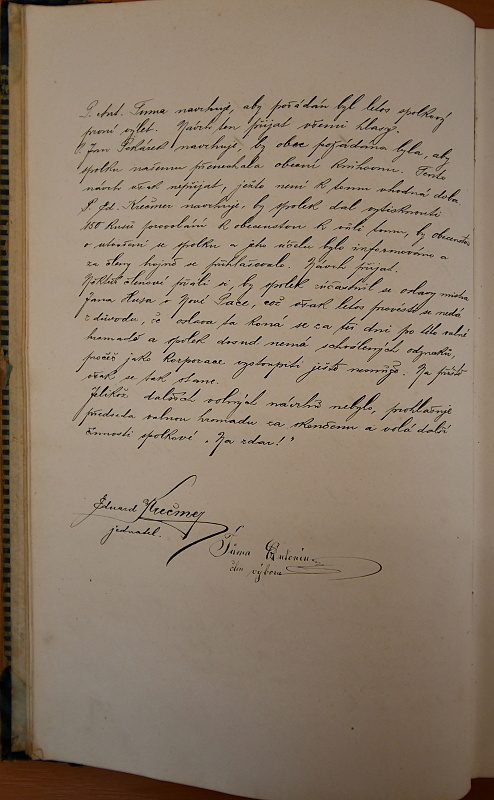 P. Ant. Tuma navrhuje, aby pořádán byl letos spolkový
první výlet. Návrh ten přijat všemi hlasy.
P. Jan Pekárek navrhuje, by obec požádána byla, aby
spolku našemu přenechala obecní knihovnu. Tento
návrh však nepřijat, ješto není k tomu vhodná doba.
P. Ed. Krečmer navrhuje, by spolek dal vytisknouti
150 kusů provolání k obecenstvu k vůli tomu, by obecenstvo
o utvoření se spolku a jeho účelu bylo informováno a
za členy hojně se přihlašovalo. Návrh přijat.
Někteří členové přáli si, by spolek súčastnil se oslavy mistra
Jana Husa v Nové Pace, což však letos provésti se nedá
z důvodu, že oslava ta koná se za tři dni po této valné
hromadě a spolek dosud nemá schválených odznaků,
pročež jako korporace vystoupiti ještě nemůže. Na příště
však se tak stane.
Jelikož dalších volných návrhů nebylo, prohlašuje
předseda valnou hromadu za skončenu a volá další
činnosti spolkové „Na zdar!"
Eduard Krečmer
jednatel.
Tůma Antonín
člen výboru